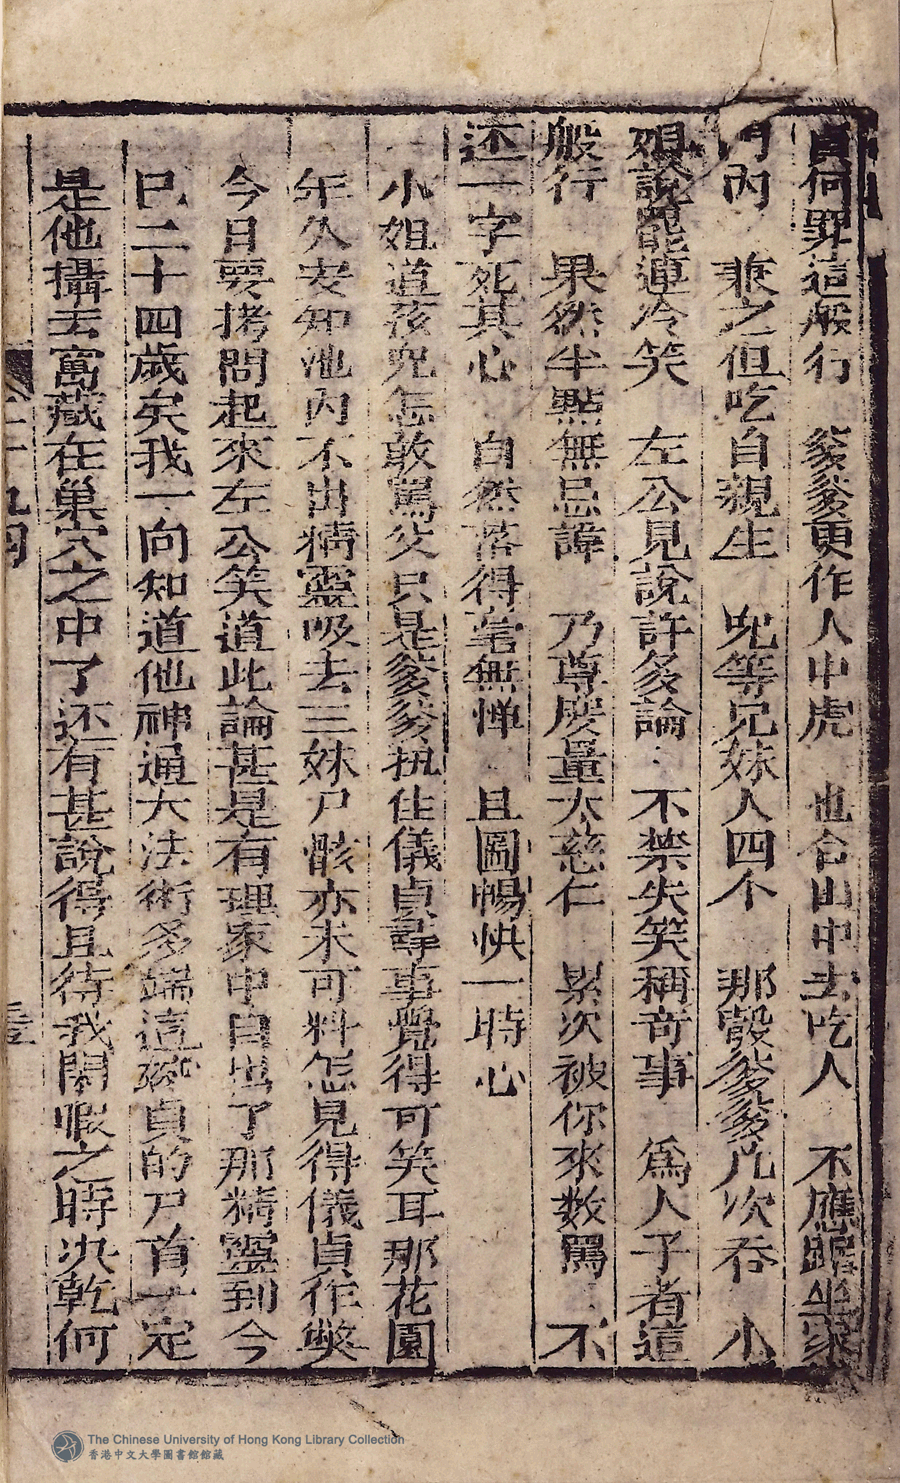 貞何罪這般行　爹爹更作人中虎　也合山中去吃人　不應踞坐家
門內　兼之但吃自親生　兒等兄妹人四个　那彀爹爹几次吞　小
姐說罷連冷笑　左公見說許多論　不禁失笑稱奇事　爲人子者這
般行　果然半點無忌諱　乃尊度量太慈仁　累次被你來数罵　不
还一字死其心　自然落得毫無惮　且圖暢快一時心
小姐道孩兒怎敢罵父只是爹爹执住儀貞尋事覺得可笑耳那花園
年久安知池內不出精靈吸去三妹尸骸亦未可料怎見得儀貞作獘
今日要拷問起來左公笑道此論甚是有理家中自出了那精靈到今
已二十四歲矣我一向知道他神通大法術多端這孩貞的尸首一定
是他攝去窩藏在巢穴之中了还有甚說得且待我閑暇之時决乾何
The Chinese University of Hong Kong Library Collection
香港中文大學圖書館館藏